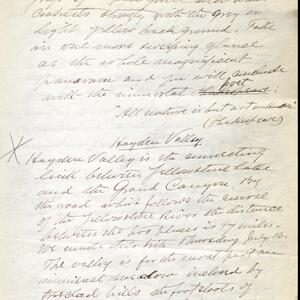 contrasts strongly with the grey or
light yellow back ground. Take
in one more sweeping glance
as the whole magnificent
panorama and you will conclude
with the immortal poet
"All nature is but art unknown"
(Shakespeare)
Hayden Valley
X Hayden Valley is the connecting
link between Yellowstone Lake
and the Grand Canyon. By
the road which follows the course
of the Yellowstone River the distance
between the two places is 17 miles.
We made this trip Thursday July 16.
The valley is for the most part an
meadow inclosed by
hills the foot slopes of